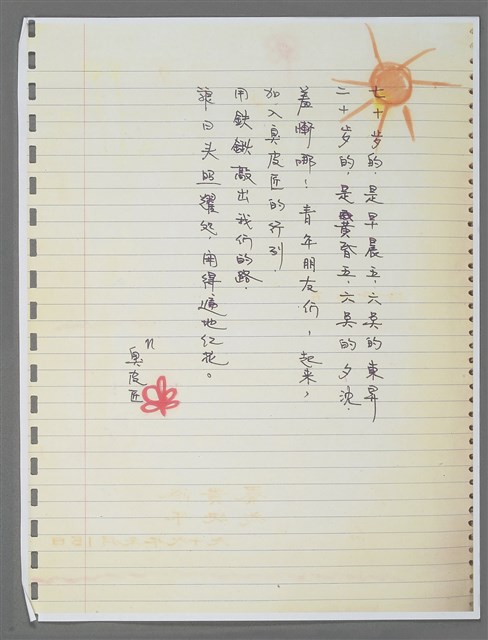 七十岁的，是早晨五、六点的東昇
二十岁的，是黄昏五、六点的夕沈．
羞慚哪！青年朋友们，起来，
加入臭皮匠的行列．
用鉄鍬敲出我们的路．
讓日头照耀处，開得遍地红花。
臭皮匠